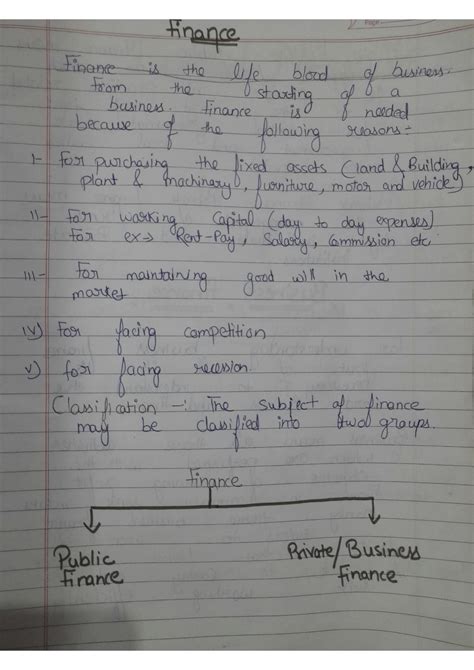 Finance
Finance is the life blood of business.
from the starting of a
business. Finance is needed
because of the following reasons:-
I- For purchasing the fixed assets (land & Building,
plant & machinary, furniture, motor and vehicle)
II- For working Capital (day to day expenses)
For ex→ Rent-Pay, Salary, Commission etc.
III- For maintaining good will in the
market
IV) For facing competition
V) for facing recession.
Classification -: The subject of finance
may be classified into two groups.
Finance
Public
Finance
Private/Business
finance